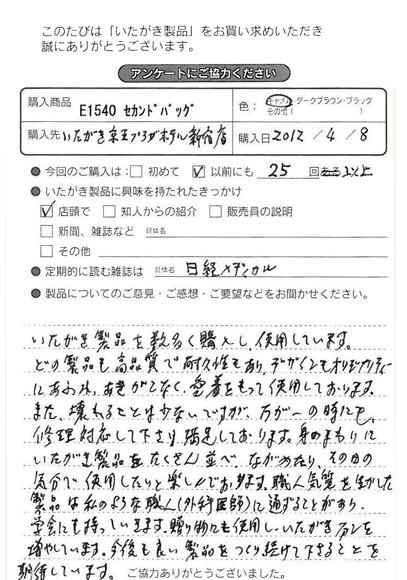 このたびは「いたがき製品」をお買い求めいただき
誠にありがとうございます。
アンケートにご協力ください
購入商品 E1540 セカンドバッグ 色：キャメル・ダークブラウン・ブラック
その他（ ）
購入先 いたがき京王プラザホテル新宿店 購入日 2012 / 4 / 8
● 今回のご購入は：□ 初めて ☑ 以前にも 25 回ある以上
● いたがき製品に興味を持たれたきっかけ
☑ 店頭で □ 知人からの紹介 □ 販売員の説明
□ 新聞、雑誌など 具体名
□ その他
● 定期的に読む雑誌は 具体名 日経メディカル
● 製品についてのご意見・ご感想・ご要望などをお聞かせください。
いたがき製品を数多く購入し、使用しています。
どの製品も高品質で耐久性もあり、デザインもオリジナリティー
にあふれ、あきがこなく、愛着をもって使用しております。
また、壊れることは少ないですが、万が一の時にも、
修理対応して下さり、満足しております。身のまわりに
いたがき製品をたくさん並べ、ながめたり、その日の
気分で使用したりと楽しんでおります。職人気質を生かした
製品は私のような職人(外科医師)に通ずることがあり、
学会にも持っていきます。贈り物にも使用し、いたがきファンを
増やしています。今後も良い製品をつくり続けて下さることを
期待しています。
ご協力ありがとうございました。